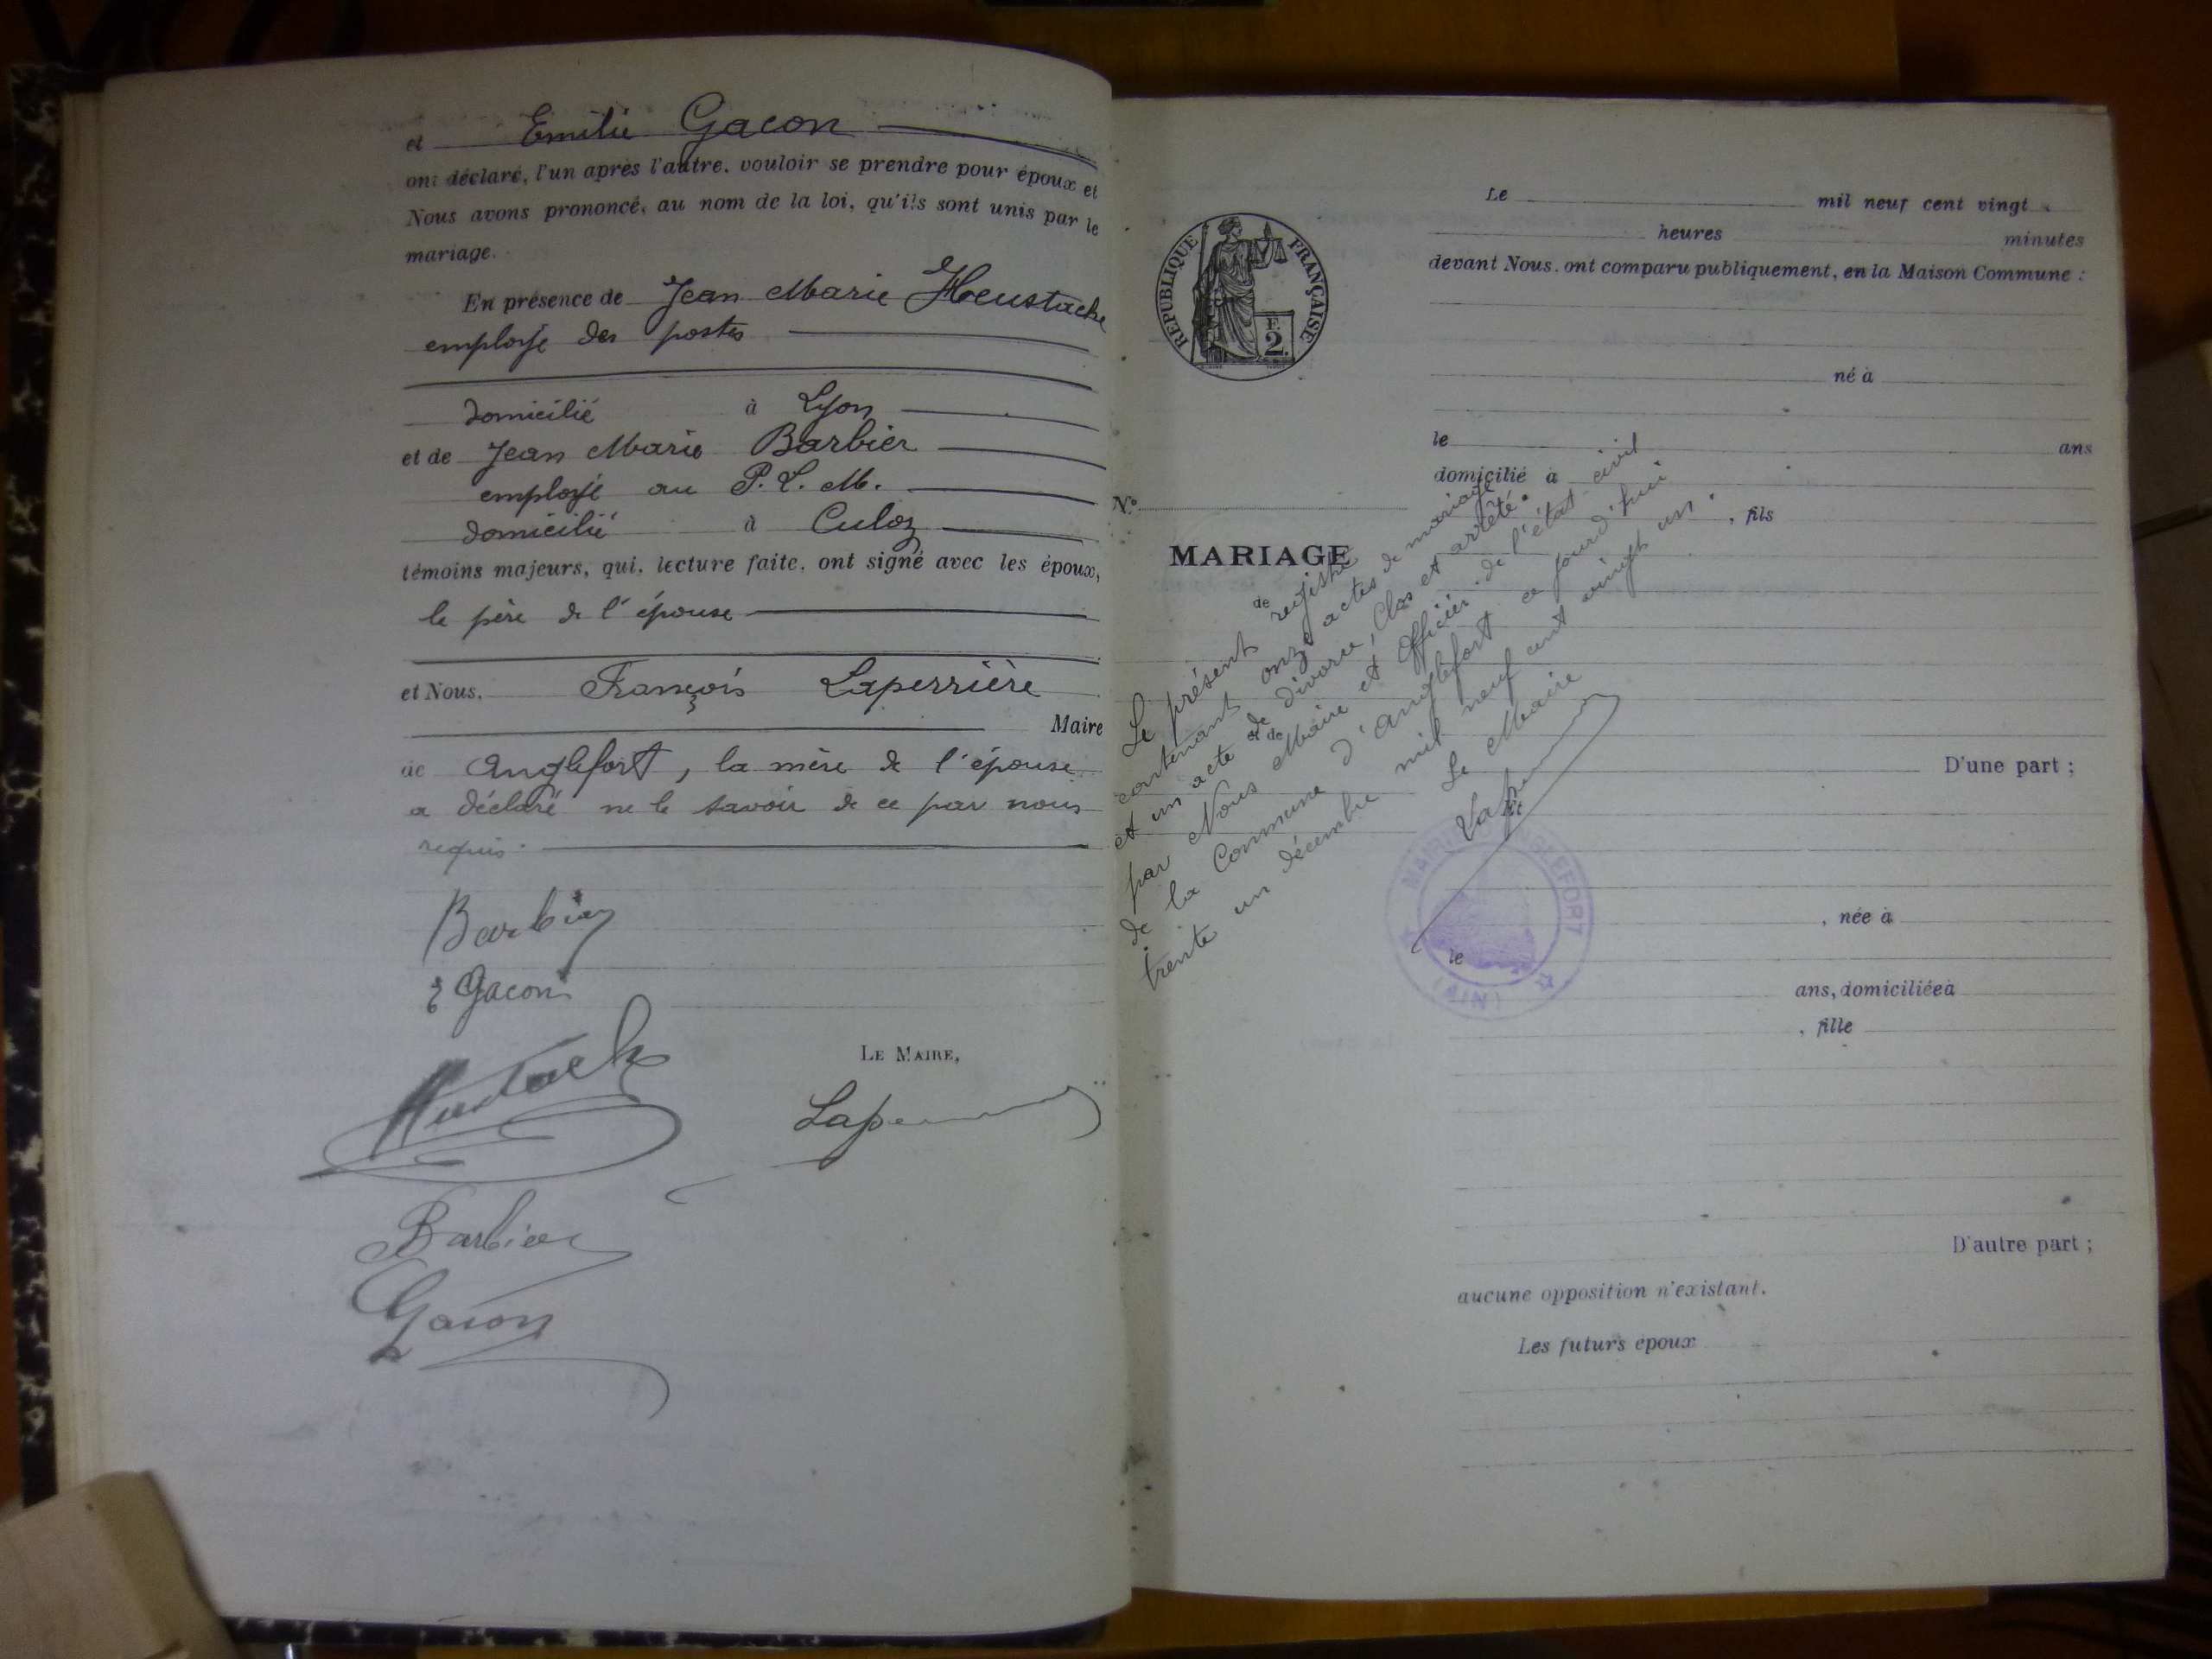 et Emilie Gacon
ont déclaré, l'un après l'autre, vouloir se prendre pour époux et
Nous avons prononcé, au nom de la loi, qu'ils sont unis par le
mariage.
En présence de Jean Marie Heustache
employé des postes
domicilié à Lyon
et de Jean Marie Barbier
employé au P. L. M.
domicilié à Culoz
témoins majeurs, qui, lecture faite, ont signé avec les époux,
le père de l'épouse
et Nous, François Laperrière
Maire
de Anglefort, la mère de l'épouse
a déclaré ne le savoir de ce par nous
requis.
Barbier
E Gacon
LE MAIRE,
Barbier
Gacon
REPUBLIQUE FRANÇAISE
F.
2
N°
MARIAGE
de
et de
Le présent registre
contenant onze actes de mariage
et un acte de divorce, Clos et arrêté
par Nous Maire et Officier de l'état-civil
de la Commune d'Anglefort ce jourd'hui
trente un décembre mil neuf cent vingt un.
Le Maire
MAIRIE D'ANGLEFORT
(AIN)
Le mil neuf cent vingt
heures minutes
devant Nous, ont comparu publiquement, en la Maison Commune :
né à
le ans
domicilié à
, fils
D'une part ;
Et
, née à
le
ans, domiciliée à
, fille
D'autre part ;
aucune opposition n'existant.
Les futurs époux